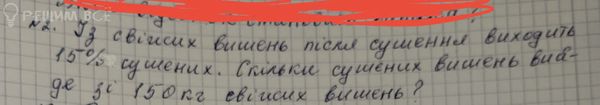 РЕШИМ ВСЁ
№2. Із свіжих вишень після сушення виходить
15% сушених. Скільки сушених вишень вий-
де зі 150 кг свіжих вишень?